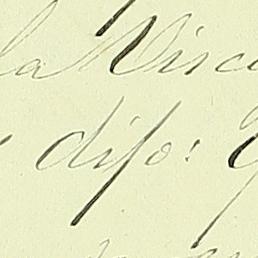 la Visc
dijo: